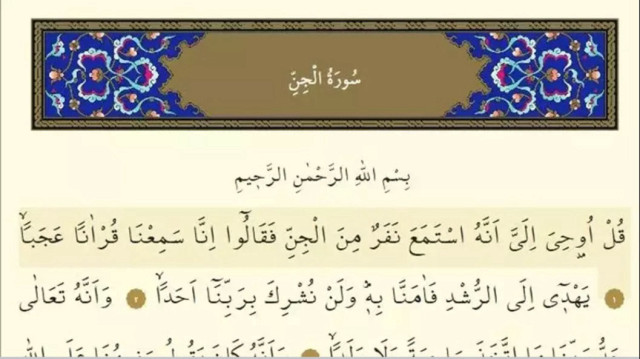 سُورَةُ الْجِنِّ
بِسْمِ اللهِ الرَّحْمٰنِ الرَّحٖيمِ
قُلْ اُو۫حِيَ اِلَيَّ اَنَّهُ اسْتَمَعَ نَفَرٌ مِنَ الْجِنِّ فَقَالُٓوا اِنَّا سَمِعْنَا قُرْاٰنًا عَجَبًاۙ
١ يَهْدٖٓي اِلَى الرُّشْدِ فَاٰمَنَّا بِهٖؕ وَلَنْ نُشْرِكَ بِرَبِّنَٓا اَحَدًاۙ ٢ وَاَنَّهُ تَعَالٰى